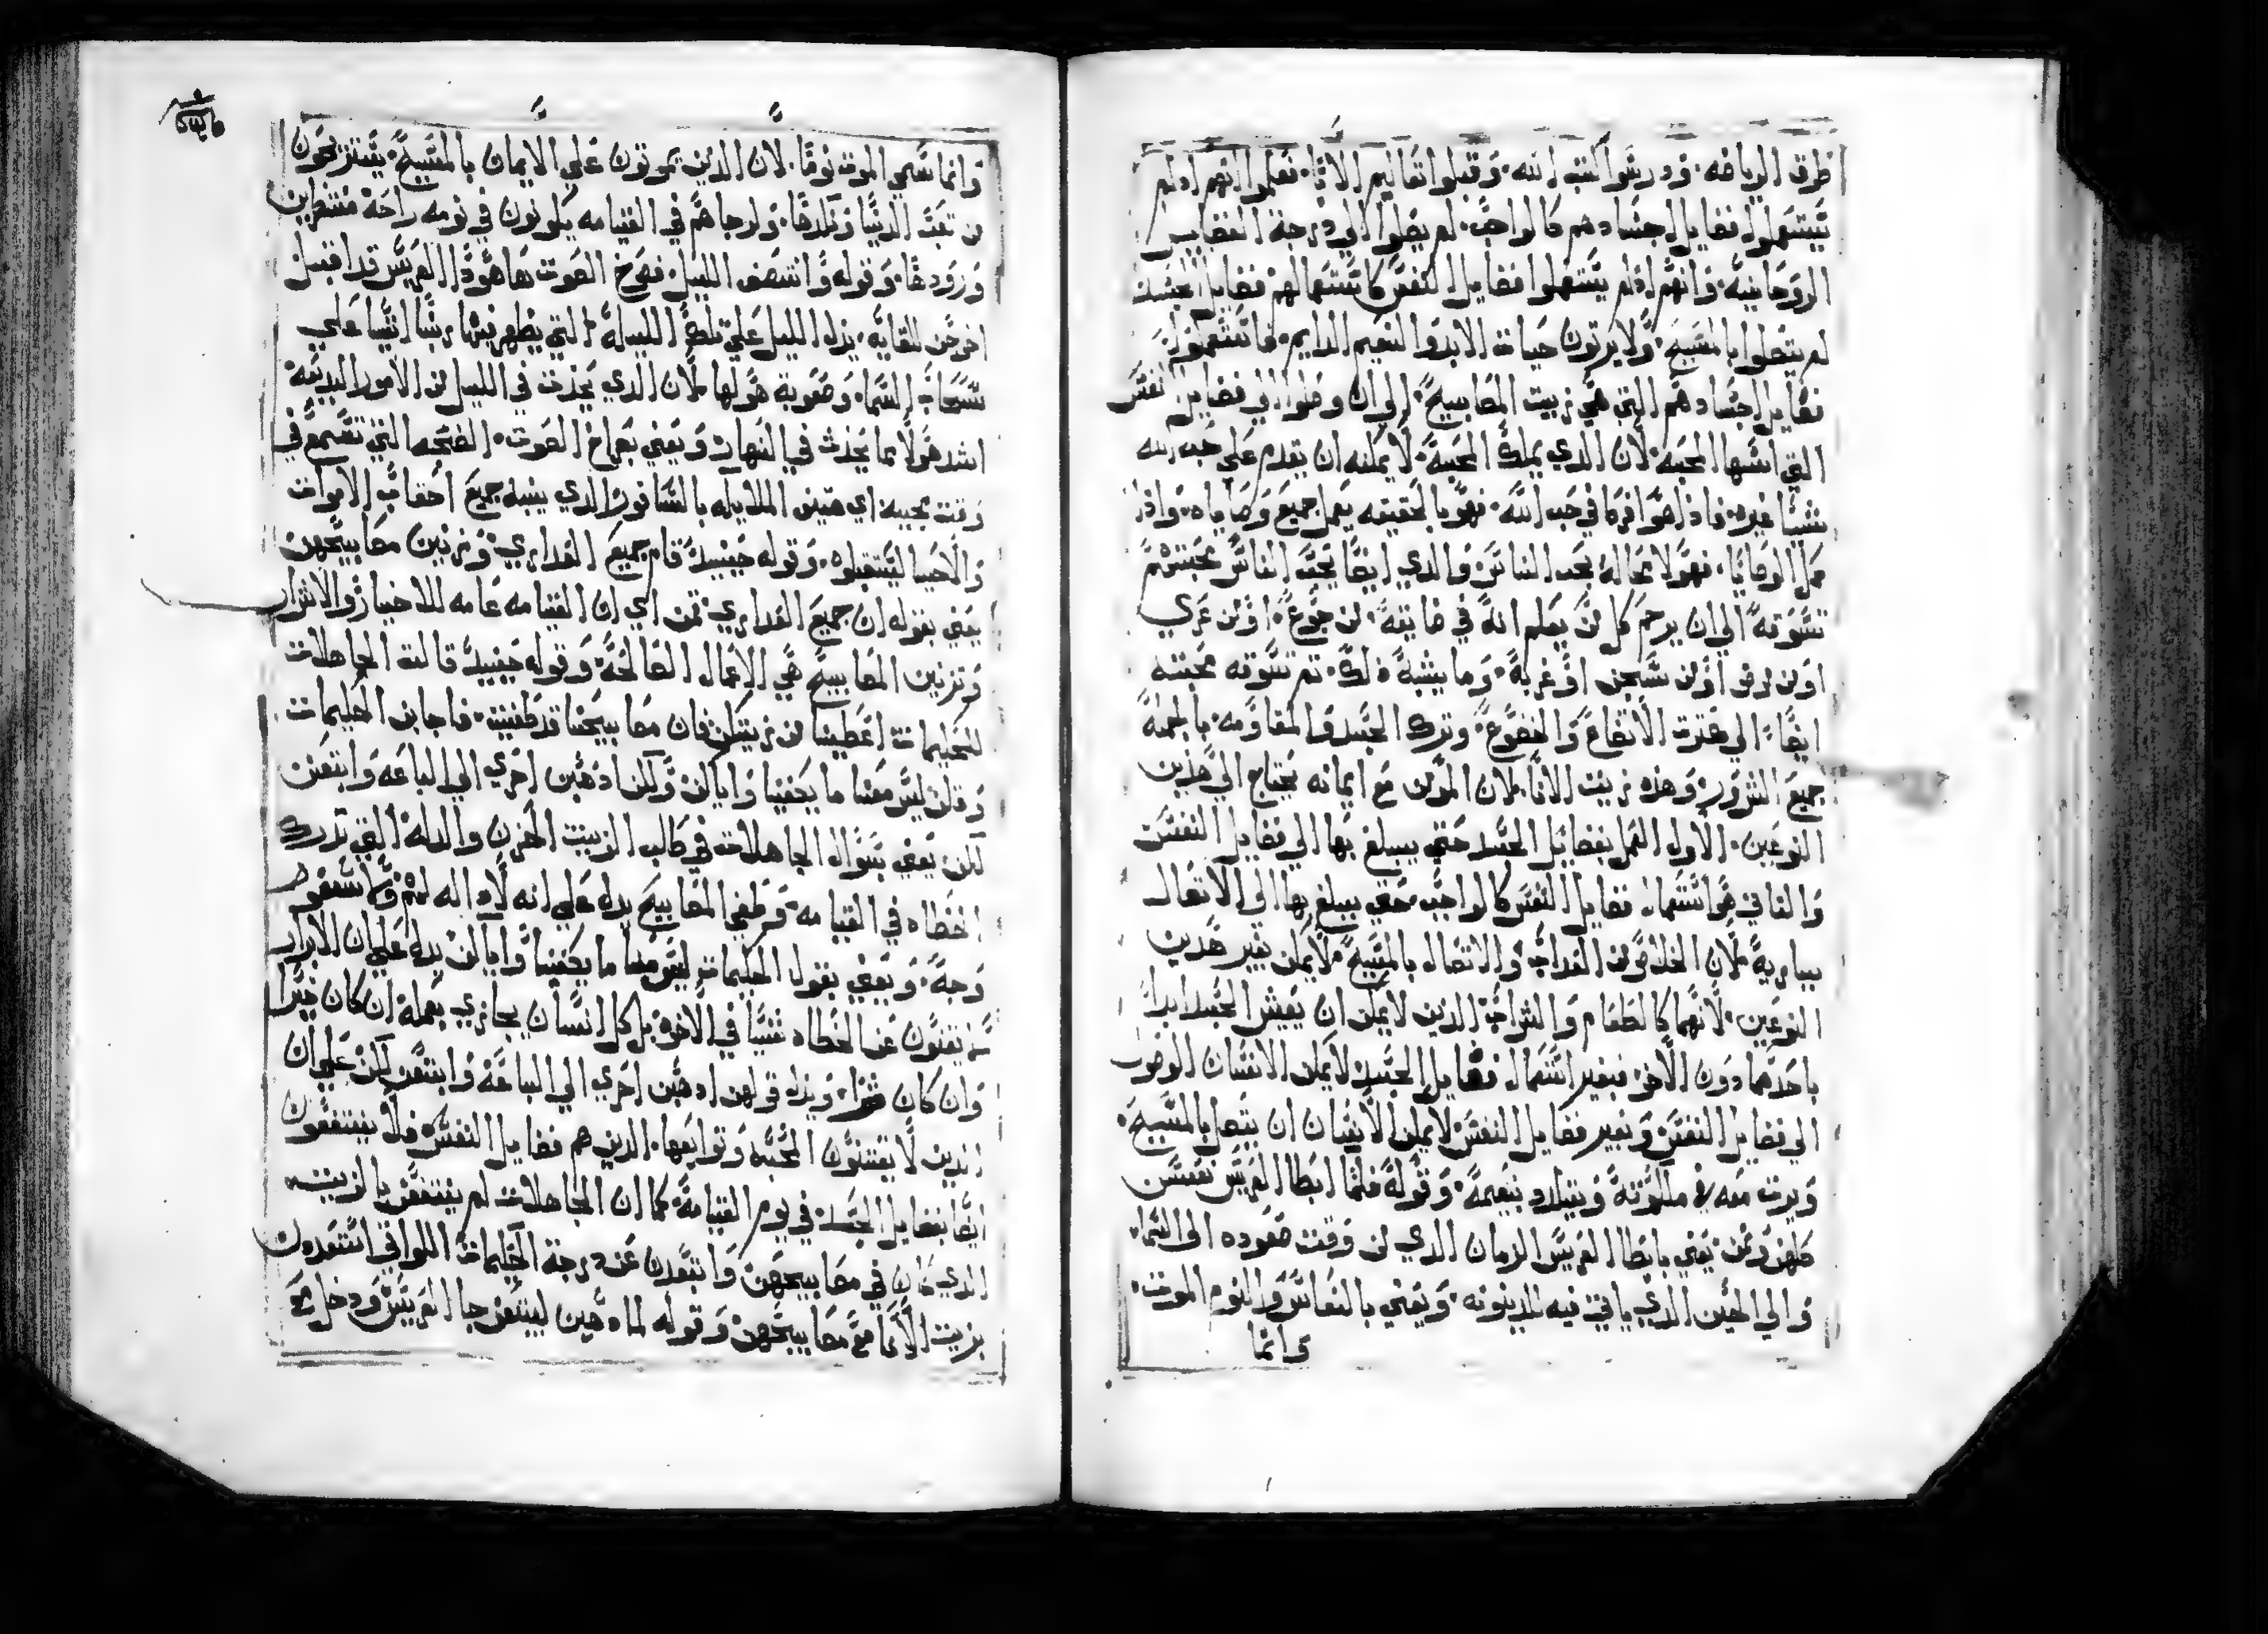 طرق الرياضه. ودرسوا كتب الله. وقبلوا تعاليم الابا. فعلموا انهم اذ لم
يستعملوا فضايل اجسادهم كالواجب. لم يصلوا الي درجة الفضايل
الروحانيه. وانهم اذ لم يستعملوا فضايل النفس كاستعمالهم فضايل الجسد
لم يتصلوا بالمسيح. ولا يرتون حيات الابد والنعيم الدايم. فاستعملوا
فضايل اجسادهم التي هي زيت المصابيح. الي ان وصلوا الي فضايل النفس
التي اسها المحبه. لان الذي يملك المحبة. لا يمكنه ان يقدم علي حب الله
شيا غيره. فاذا هوا في حب الله. فهو بالحقيقه يعمل جميع وصاياه. واذا
عمل الوصايا. فهو لا محالة يحب الناس. والذي ايضا يحب الناس محبتهم
تسوقه الي ان يرحم كل من يعلم انه في ضايقة. من جوع. او من عري
او من مرض او من سجن او غربة. وما يشبه ذلك. تم تسوقه محبته
ايضا. الي الاتضاع والخضوع. وترك الحسد والمقاومه. بالجملة
جميع الشرور. وهذه زيت الانا. لان المومن مع ايمانه يحتاج الي هذين
النوعين. الاول العمل بفضايل الجسد حتي يبلغ بها الي فضايل النفس
والتاني هو استعمال فضايل النفس كالواجب. حتي يبلغ بها الي الاتصال
بباريه. لان الخلاص من العداب. والاتصال بالمسيح. لا يمكن بغير هدين
النوعين. لانهما كالطعام والشراب. الذين لا يمكن ان يعيش الجسد ابدا
باحدهما دون الاخر. فبغير استعمال فضايل الجسد لا يمكن الانسان الوصول
الي فضايل النفس. وبغير فضايل النفس لا يمكن الانسان ان يتصل بالمسيح.
ويرت معه في ملكوته ويتلدد بنعيمه. وقوله فلما ابطا العريس نعسن
كلهن ونمن. يعني بابطا العريس الزمان الذي من وقت صعوده الي السما.
والي الحين الدي ياتي فيه للدينونه. ويعني بالنعاس والنوم الموت.
وانما
وانما سمي الموت نوما. لان الذين يموتون علي الايمان بالمسيح. يستريحون
من تعب الدنيا ونكدها. ولرجاهم في القيامه يكونون في نومه راحة منتظرين
وقوله وانتصف الليل. فصرخ الصوت هاهودا العريس قد اقبل
اخرجن للقايه. يدل الليل علي تلك الليلة التي يظهر فيها ربنا اتيا علي
سحاب السما. وصعوبة هولها لان الذي يحدت في الليل من الامور
اشد هولا مما يحدت في النهار. ويعني بصراخ الصوت. الصيحه التي تسمع في
وقت مجيه اي هتيف الملايكه بالسافور الدي ينبه جميع احقاب الاموات
والاحيا ليستقبلوه. وقوله حينيد قام جميع العداري. وزينن مصابيحهن
يعني بقوله ان جميع العداري قمن اي ان القيامه عامه للاخيار والاشرار
وتزيين المصابيح هي الاعمال الصالحة. وقوله حينيد قالت الجاهلات
للحكيمات اعطينا من زيتكن فان مصابيحنا قد طفيت. فاجابن الحكيمات
وقلن ليس معنا ما يكفينا واياكن ولكن ادهبن احري الي الباعه وابتعن
لكن. يعني بسوال الجاهلات في طالب الزيت الحزن والدلة التي تدرك
الخطاه في القيامه. وطفي المصابيح يدل علي انه لا داله لهم
وجة. ويعني بقول الحكيمات ليس معنا ما يكفينا واياكن. يدل علي ان الابرار
لا يغنون عن الخطاه شيا في الاخرة. بل كل انسان يجازي بعمله ان كان خيرا
وان كان شرا. ويدل قولهن ادهبن احري الي الباعة وابتعن لكن علي ان
الدين لا يقتنون المحبه وتوابعها. الدين هم فضايل النفس. فلا ينتفعون
ايضا بفضايل الجسد. في يوم القيامة. كما ان الجاهلات لم ينتفعن بالزيت
الدي كان في مصابيحهن. وابتعدن عن درجة الحكيمات اللواتي استعدون
بزيت الانا مع مصابيحهن. وقوله لما دهبن ليبتعن جا العريس ودخل مع